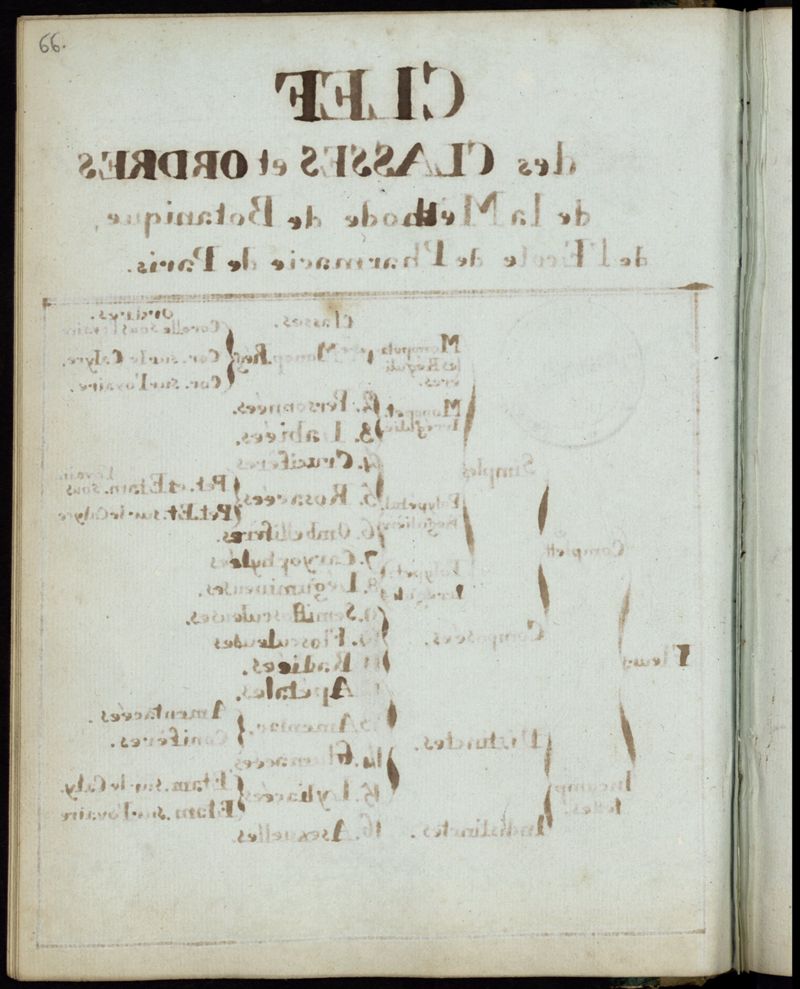 66.
CLEF
des CLASSES et ORDRES
de la Méthode de Botanique,
de l'Ecole de Pharmacie de Paris.
Classes.
Ordres.
Fleurs
Complett
Simples
Monopetal
les Reguli
eres.
1re Monop. Rég.
Corolle Sous l'ovaire
Cor. sur le Calyce.
Cor. sur l'ovaire.
Monopet.
Irregulie
2. Personnées.
3. Labiées.
Polypetal.
Régulières
4. Crucifères
5. Rosacées
Pet. et Etam. sous
l'ovair
Pet. Et. sur le Calyce
6. Ombellifères.
Polypeta
Irregulie
7. Caryophylées
8. Légumineuses.
Composées.
9. Semiflosculeuses.
10. Flosculeuses
11. Radiées.
Incomp
lettes.
Distinctes.
12. Apétales.
13. Amentac.
Amentacées.
Conifères.
14. Glumacées
15. Lyliacées
Etam. sur le Caly.
Etam. sur l'ovaire
Indistinctes.
16. Asexuelles.